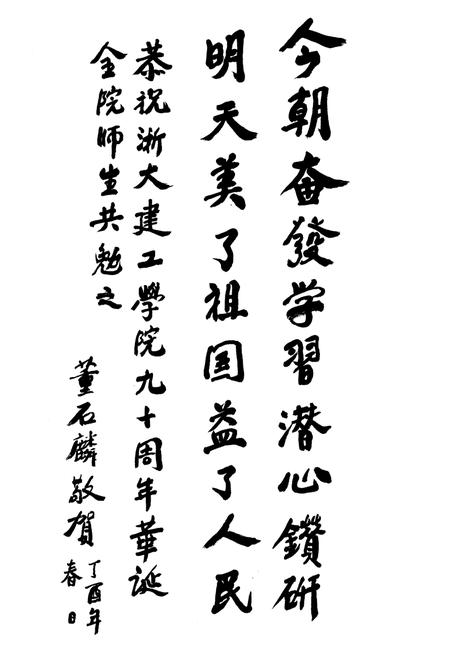 今朝奋發学習潜心鑽研
明天美了祖国益了人民
恭祝浙大建工學院九十周年華誕
全院师生共勉之
董石麟敬賀
丁酉年
春日